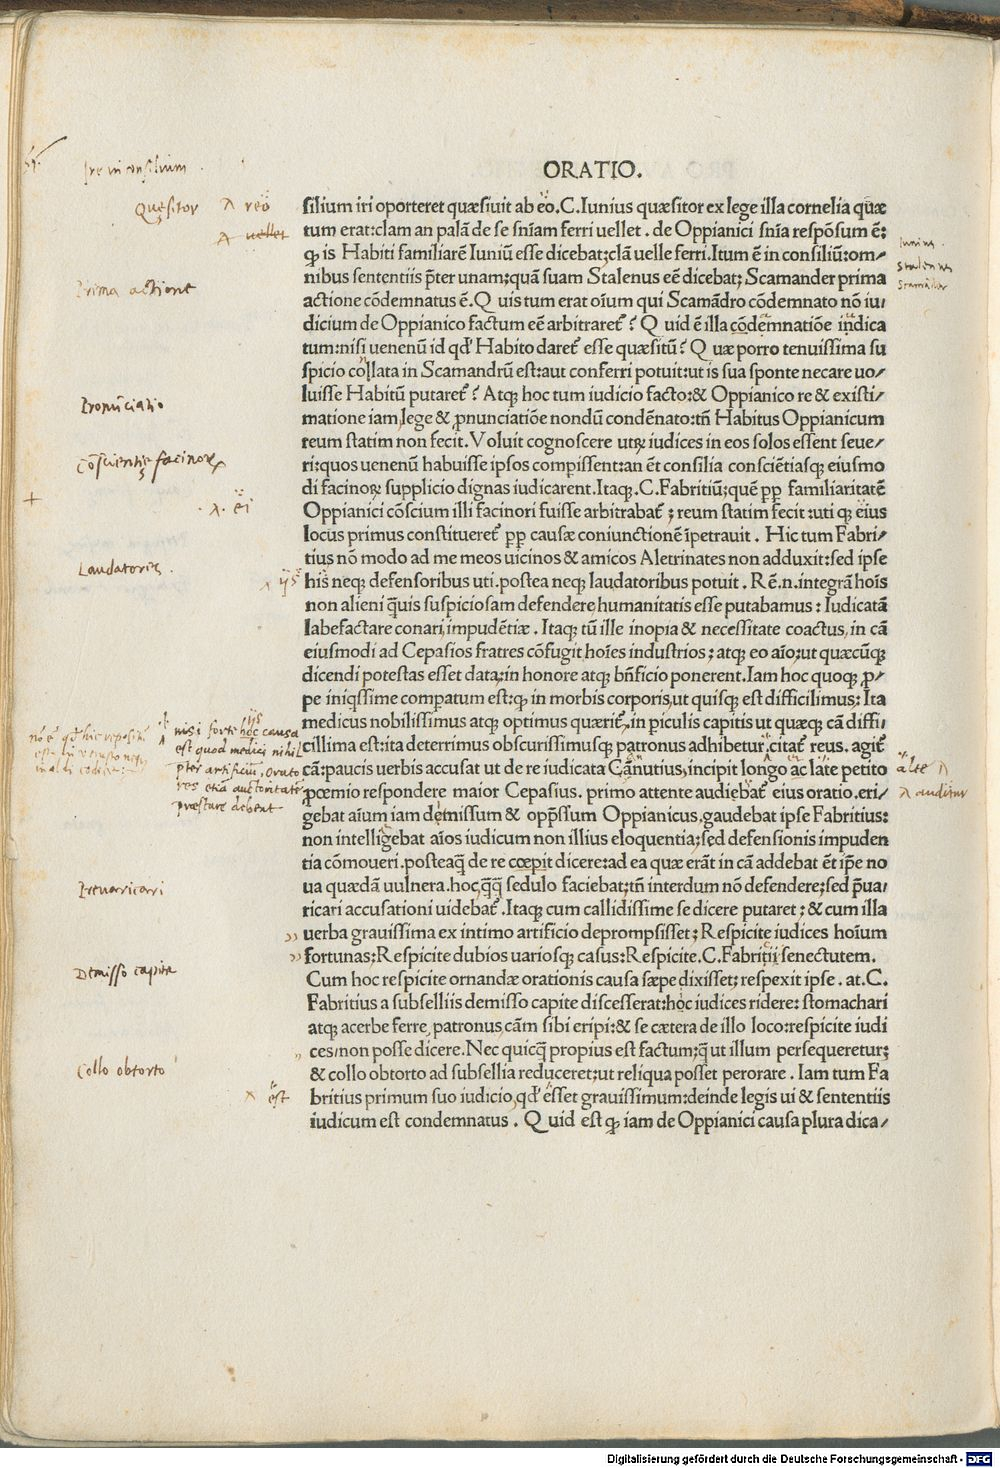 ORATIO.
silium iri oporteret quæsiuit ab eo.C.Iunius quæsitor ex lege illa cornelia quæ
tum erat:clam an palā de se sñiam ferri uellet . de Oppianici sñia respōsum ē:
ꝙ is Habiti familiarē Iuniū esse dicebat;clā uelle ferri.Itum ē in consiliū:om⸗
nibus sententiis p̃ter unam;quā suam Stalenus eē dicebat; Scamander prima
actione cōdemnatus ē.Q uis tum erat oīum qui Scamādro cōdemnato nō iu⸗
dicium de Oppianico factum eē arbitraret᷑ ? Q uid ē illa cōdēmnatiōe īdica
tum:nisi uenenū id qd̕ Habito daret᷑ esse quæsitū? Q uæ porro tenuissima su
spicio collata in Scamandrū est:aut conferri potuit:ut is sua sponte necare uo⸗
luisse Habitū putaret᷑ ? Atqꝫ hoc tum iudicio facto:& Oppianico re & existi⸗
matione iam,lege & ꝓnunciatiōe nondū condēnato:tñ Habitus Oppianicum
reum statim non fecit.Voluit cognoscere utꝝ iudices in eos solos essent seue⸗
ri:quos uenenū habuisse ipsos compissent:an ēt consilia consciētiasqꝫ eiusmo
di facinoꝝ supplicio dignas iudicarent.Itaqꝫ.C.Fabritiū;quē ꝓp familiaritatē
Oppianici cōscium illi facinori fuisse arbitrabat᷑ ; reum statim fecit :uti qꝫ eius
locus primus constitueret᷑ ꝓp causæ coniunctionē īpetrauit . Hic tum Fabri⸗
tius nō modo ad me meos uicinos & amicos Aletrinates non adduxit:sed ipse
his neqꝫ defensoribus uti.postea neqꝫ laudatoribus potuit . Rē.n.integrā hois
non alieni q̃uis suspiciosam defendere humanitatis esse putabamus : Iudicatā
labefactare conari,impudētiæ . Itaqꝫ tū ille inopia & necessitate coactus,in cā
eiusmodi ad Cepasios fratres cōfugit hoies industrios ; atqꝫ eo aīo;ut quæcūqꝫ
dicendi potestas esset data;in honore atqꝫ bñficio ponerent.Iam hoc quoqꝫ ꝓ⸗
pe iniqssime compatum est:ꝙ in morbis corporis,ut quisqꝫ est difficilimus; Ita
medicus nobilissimus atqꝫ optimus quærit᷑,in piculis capitis ut quæqꝫ cā diffi⸗
cillima est:ita deterrimus obscurissimusqꝫ patronus adhibetur.citat᷑ reus. agit᷑
cā:paucis uerbis accusat ut de re iudicata Cānutius,incipit longo ac late petito
ꝓœmio respondere maior Cepasius. primo attente audiebat᷑ eius oratio.eri⸗
gebat aīum iam demissum & opp̃ssum Oppianicus,gaudebat ipse Fabritius:
non intelligebat aīos iudicum non illius eloquentia;sed defensionis impuden
tia cōmoueri.posteaq̃ de re cœpit dicere:ad ea quæ erāt in cā addebat ēt ip̄e no
ua quædā uulnera.hoc,q̃q̃ sedulo faciebat;tñ interdum nō defendere;sed p̃ua⸗
ricari accusationi uidebat᷑ .Itaqꝫ cum callidissime se dicere putaret ; & cum illa
uerba grauissima ex intimo artificio deprompsisset; Respicite iudices hoīum
fortunas;Respicite dubios uariosqꝫ casus:Respicite.C.Fabritii senectutem.
Cum hoc respicite ornandæ orationis causa sæpe dixisset; respexit ipse . at.C.
Fabritius a subselliis demisso capite discesserat:hoc iudices ridere: stomachari
atqꝫ acerbe ferre, patronus,cām sibi eripi:& se cætera de illo loco:respicite iudi
ces,non posse dicere.Nec quicq̃ propius est factum;q̃ ut illum persequeretur;
& collo obtorto ad subsellia reduceret;ut reliqua posset perorare . Iam tum Fa
britius primum suo iudicio,qd̕ esset grauissimum:deinde legis ui & sententiis
iudicum est condemnatus . Q uid est ꝙ iam de Oppianici causa plura dica⸗
Ire in consilium .
Quęsitor
reo
uellet
Prima actione
Pronūciatio
Cōscientię facinoꝝ
ei
Laudatores .
ijs
nisi forte hoc causa
ijs
est quod medici nihil
p̃ter artificiū, orato
res etiā auctoritatē
præstare debent
Prevaricari
Demisso capite
Collo obtorto
est
Iunius
Stalenus
Scamāder
alte
auditur
Digitalisierung gefördert durch die Deutsche Forschungsgemeinschaft - DFG